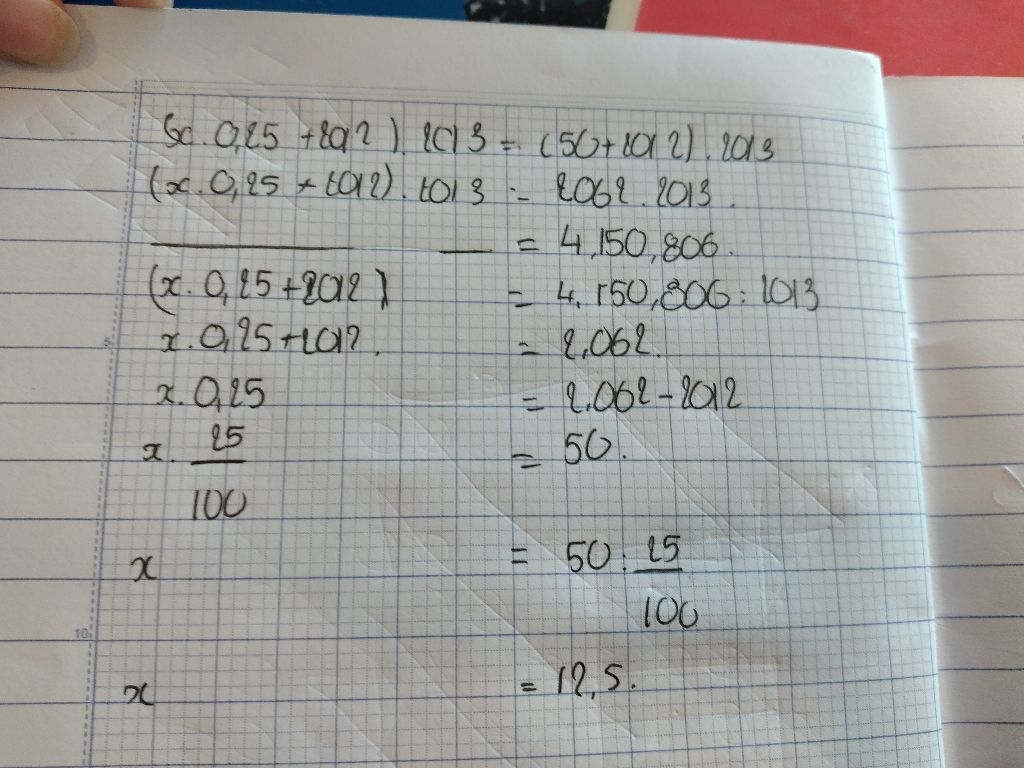 (x . 0,25 + 2012) . 2013 = (50+2012) . 2013
(x . 0,25 + 2012) . 2013 = 2062 . 2013 .
= 4,150,806 .
(x . 0,25 + 2012) = 4,150,806 : 2013
x . 0,25 + 2012 . = 2,062 .
5
x . 0,25 = 2,062 - 2012
x . 25/100 = 50 .
x = 50 : 25/100
10
x = 12,5 .